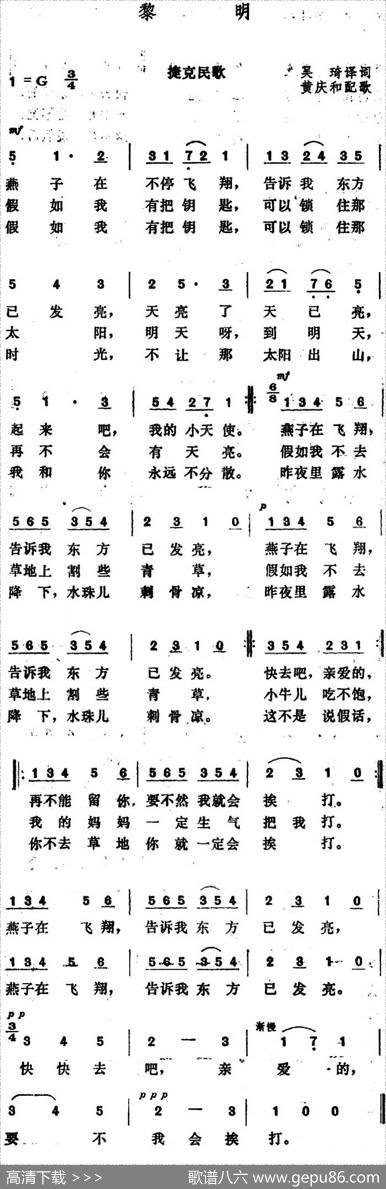 黎 明
1=G 3/4 捷克民歌 吴 琦译词
黄庆和配歌
mf
5 1· 2 31 72 1 13 24 35
燕 子 在 不停 飞 翔，告诉 我 东方
假 如 我 有把 钥 匙，可以 锁 住那
假 如 我 有把 钥 匙，可以 锁 住那
5 4 3 2 5· 3 21 76 5
已 发 亮，天 亮 了 天 已 亮，
太 阳，明 天 呀，到 明 天，
时 光，不 让 那 太阳 出 山，
5 1· 3 54 27 1 6/8 mf 134 5 6
起 来 吧，我的 小天 使。燕子在 飞 翔，
再 不 会 有 天 亮。假如我 不 去
我 和 你 永远 不分 散。昨夜里 露 水
565 354 2 3 1 0 p 134 5 6
告诉我 东 方 已 发 亮，燕子在 飞 翔，
草地上 割 些 青 草，假如我 不 去
降 下，水珠儿 刺 骨 凉，昨夜里 露 水
565 354 2 3 1 0 354 231
告诉我 东 方 已 发 亮。快去吧，亲爱的，
草地上 割 些 青 草，小牛儿 吃不饱，
降 下，水珠儿 刺 骨 凉。这不是 说假话，
134 5 6 565 354 2 3 1 0
再不能 留 你，要不然 我就会 挨 打。
我 的 妈 妈 一定 生 气 把 我 打。
你不去 草 地 你 就 一定会 挨 打。
134 5 6 565 354 2 3 1 0
燕子在 飞 翔，告诉我 东 方 已 发 亮，
134 5 6 565 354 2 3 1 0
燕子在 飞 翔，告诉我 东 方 已 发 亮。
pp
3/4 3 4 5 2 — 3 渐慢 1 7 1
快 快 去 吧，亲 爱 的，
3 4 5 ppp 2 — 3 1 0 0
要 不 我 会 挨 打。
高清下载 >>> 歌谱八六 www.gepu86.com